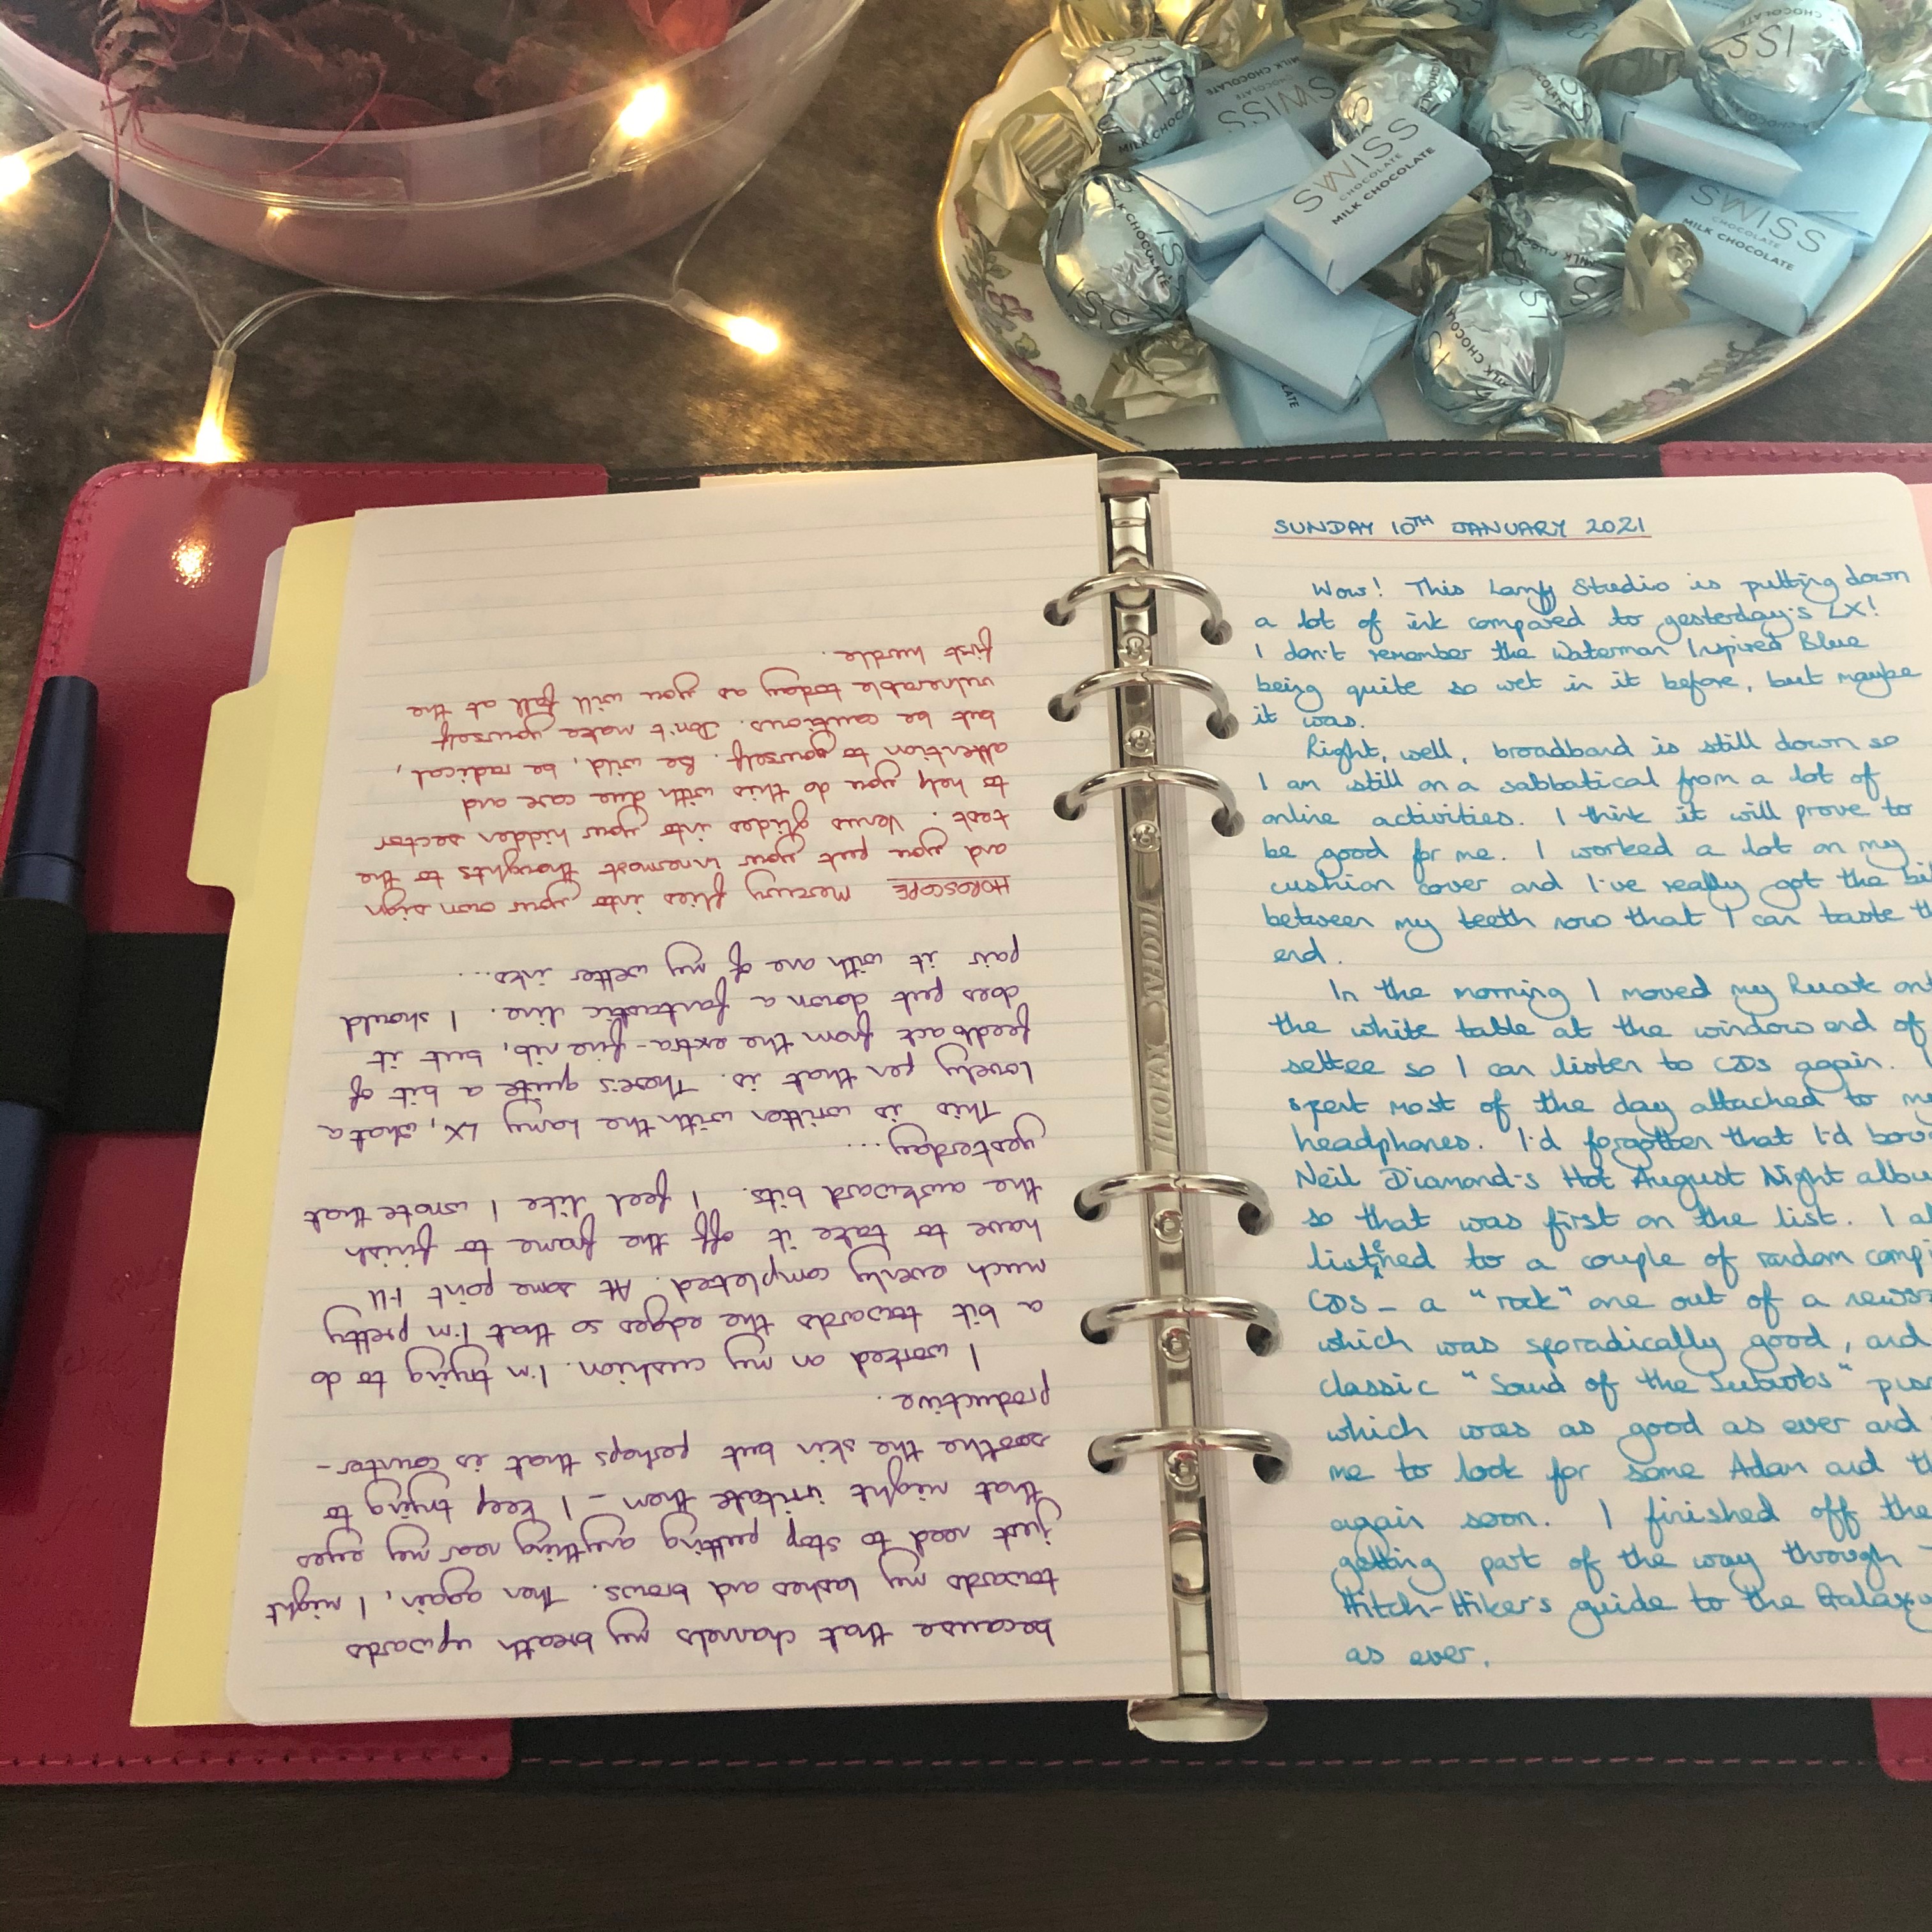 SWISS
CHOCOLATE
MILK CHOCOLATE
SWISS
CHOCOLATE
MILK CHOCOLATE
SWISS
MILK CHOCOLATE
because that channels my breath upwards
towards my lashes and brows. Then again, I might
just need to stop putting anything near my eyes
that might irritate them - I keep trying to
soothe the skin but perhaps that is counter-
productive.
I worked on my cushion. I'm trying to do
a bit towards the edges so that I'm pretty
much evenly completed. At some point I'll
have to take it off the frame to finish
the awkward bits. I feel like I wrote that
yesterday...
This is written with the Lamy LX, what a
lovely pen that is. There's quite a bit of
feedback from the extra-fine nib, but it
does put down a fantastic line. I should
pair it with one of my wetter inks...
HOROSCOPE Mercury flies into your own sign
and you put your innermost thoughts to the
test. Venus glides into your hidden sector
to help you do this with due care and
attention to yourself. Be wild, be radical,
but be cautious. Don't make yourself
vulnerable today as you will fall at the
first hurdle.
FILOFAX
SUNDAY 10TH JANUARY 2021
Wow! This Lamy Studio is putting down
a lot of ink compared to yesterday's LX!
I don't remember the Waterman Inspired Blue
being quite so wet in it before, but maybe
it was.
Right, well, broadband is still down so
I am still on a sabbatical from a lot of
online activities. I think it will prove to
be good for me. I worked a lot on my
cushion cover and I've really got the bi
between my teeth now that I can taste th
end.
In the morning I moved my Ruark ont
the white table at the window end of
settee so I can listen to CDs again.
spent most of the day attached to my
headphones. I'd forgotten that I'd bou
Neil Diamond's Hot August Night albu
so that was first on the list. I al
listened to a couple of random compi
CDs - a "rock" one out of a newsp
which was sporadically good, and
classic "Sound of the Suburbs" pun
which was as good as ever and
me to look for some Adam and th
again soon. I finished off the
getting part of the way through
Hitch-Hiker's guide to the Galaxy
as ever.